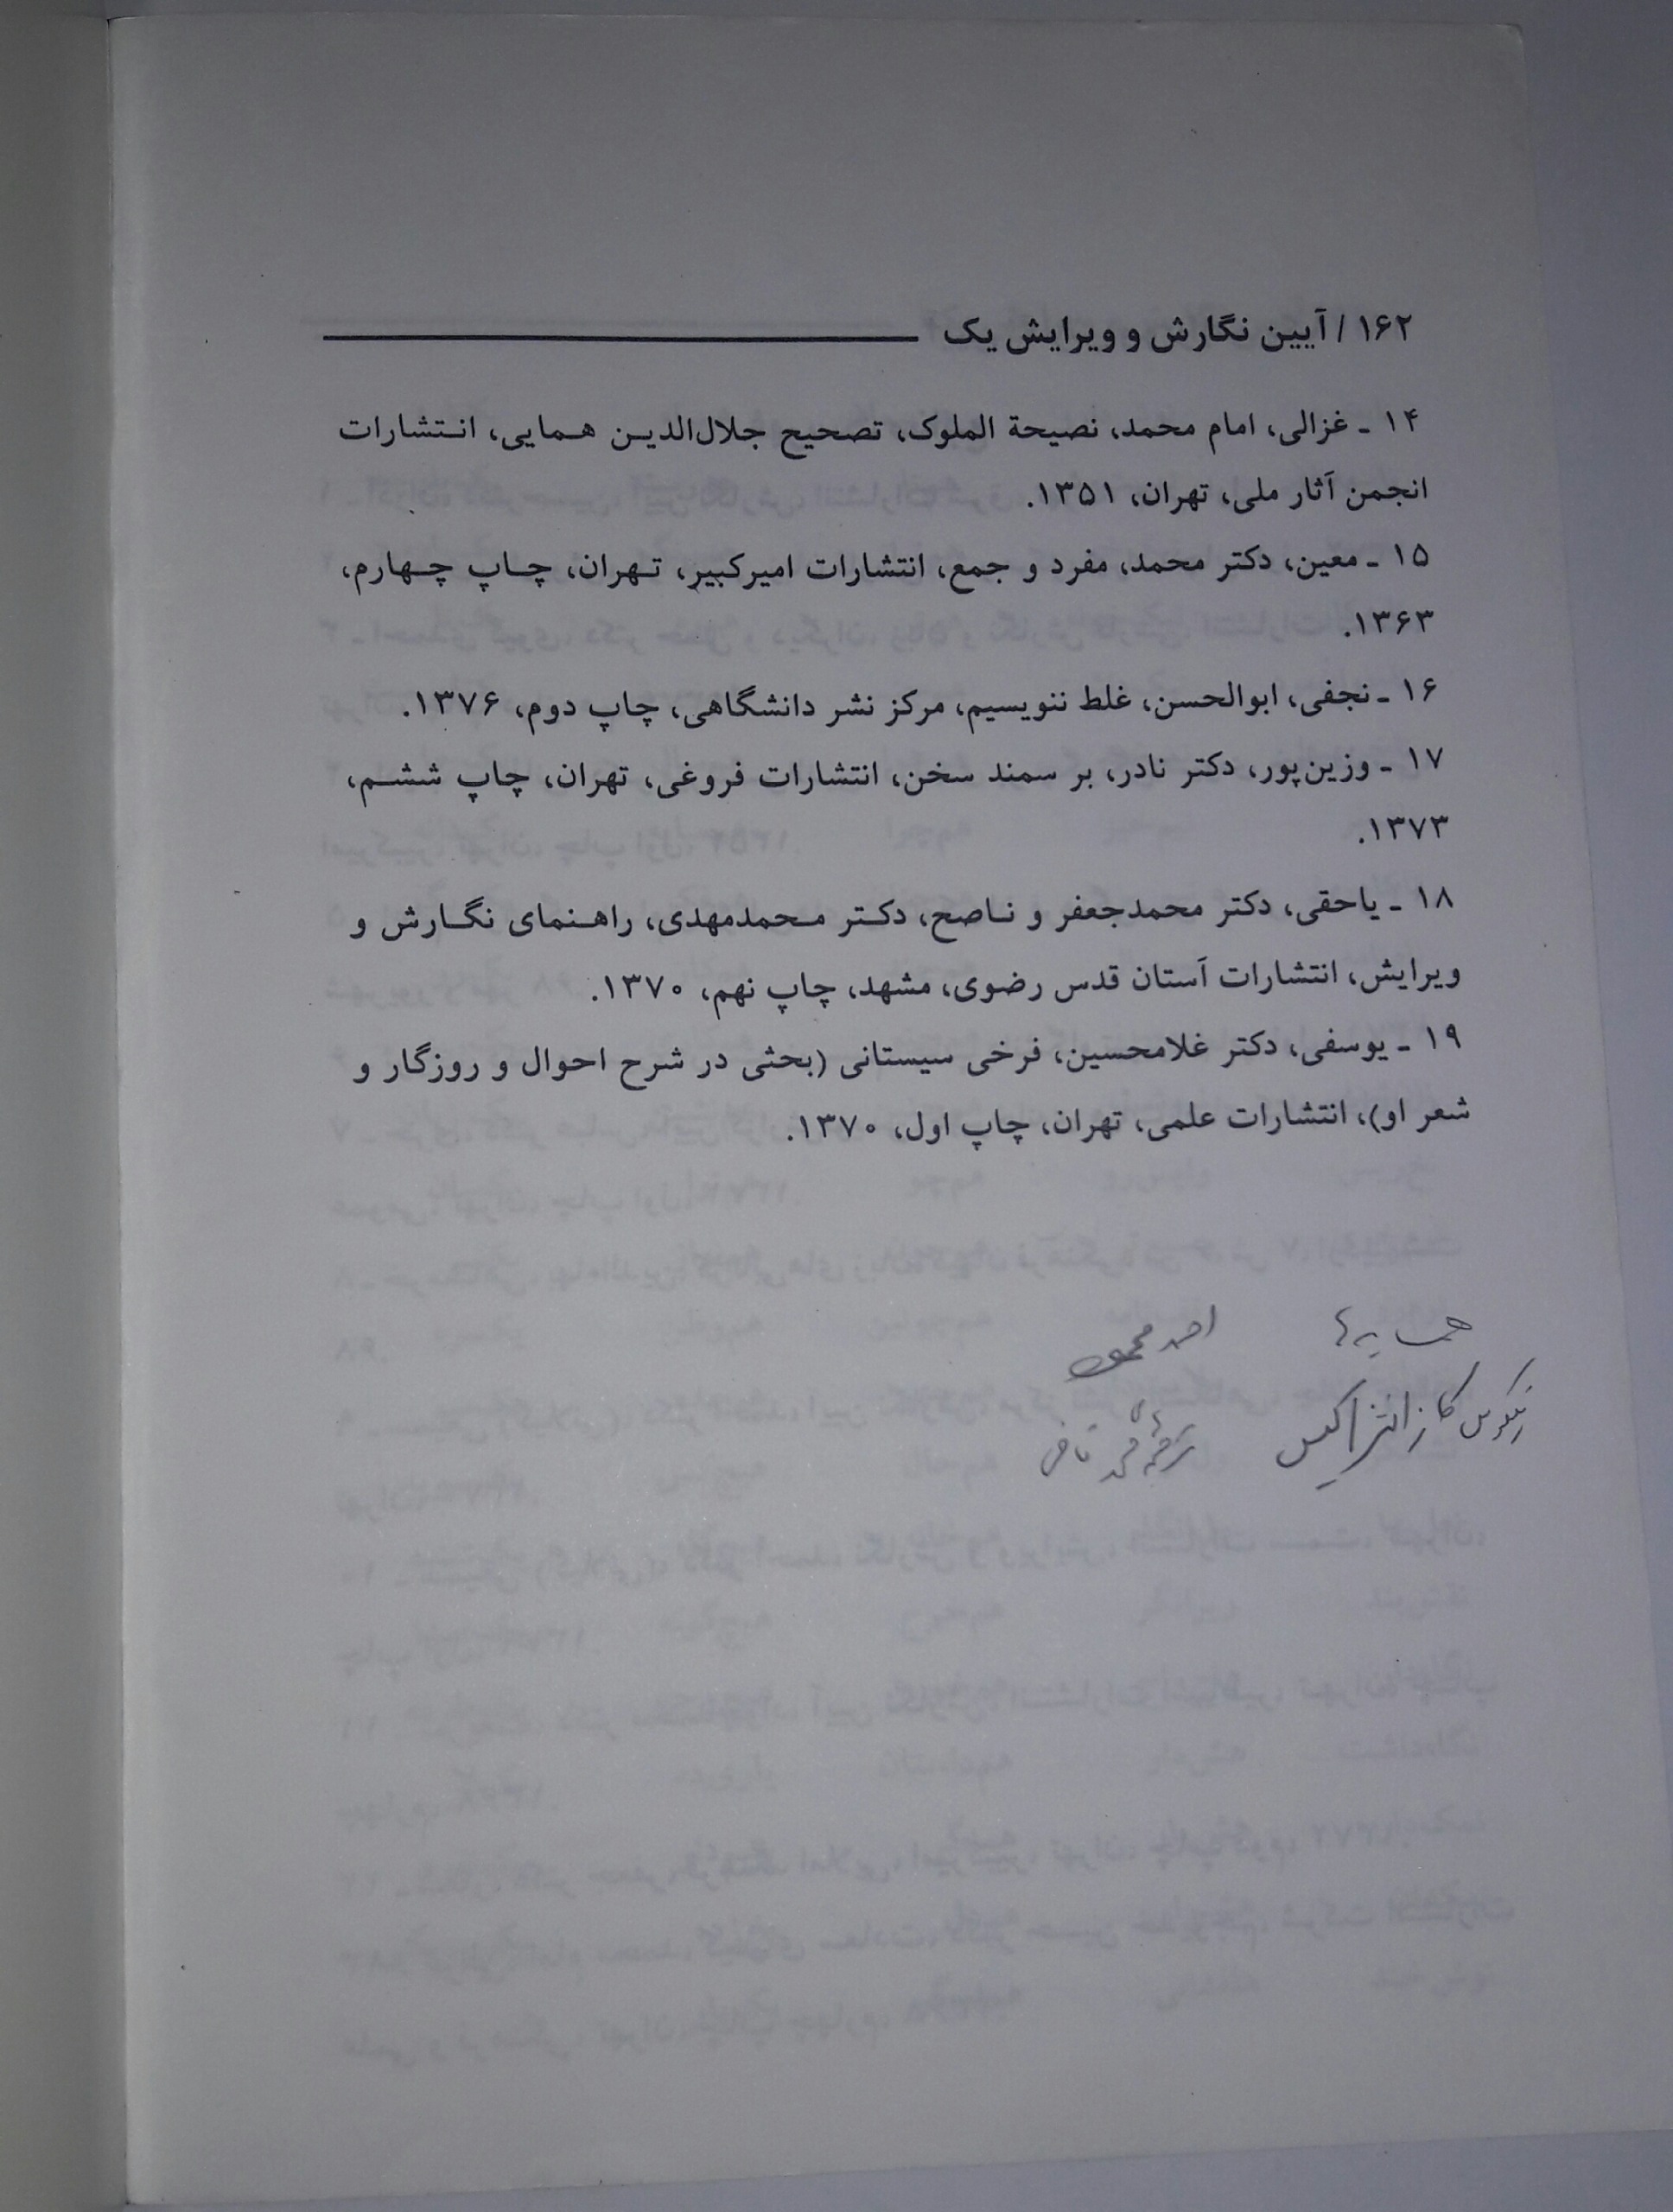 ۱۶۲ / آیین نگارش و ویرایش یک
۱۴ ـ غزالی، امام محمد، نصیحة الملوک، تصحیح جلال‌الدین همایی، انتشارات
انجمن آثار ملی، تهران، ۱۳۵۱.
۱۵ ـ معین، دکتر محمد، مفرد و جمع، انتشارات امیرکبیر، تهران، چاپ چهارم،
۱۳۶۳.
۱۶ ـ نجفی، ابوالحسن، غلط ننویسیم، مرکز نشر دانشگاهی، چاپ دوم، ۱۳۷۶.
۱۷ ـ وزین‌پور، دکتر نادر، بر سمند سخن، انتشارات فروغی، تهران، چاپ ششم،
۱۳۷۳.
۱۸ ـ یاحقی، دکتر محمدجعفر و ناصح، دکتر محمدمهدی، راهنمای نگارش و
ویرایش، انتشارات آستان قدس رضوی، مشهد، چاپ نهم، ۱۳۷۰.
۱۹ ـ یوسفی، دکتر غلامحسین، فرخی سیستانی (بحثی در شرح احوال و روزگار و
شعر او)، انتشارات علمی، تهران، چاپ اول، ۱۳۷۰.
همسایه‌ها احمد محمود
نیکوس کازانتزاکیس ترجمهٔ محمد قاضی